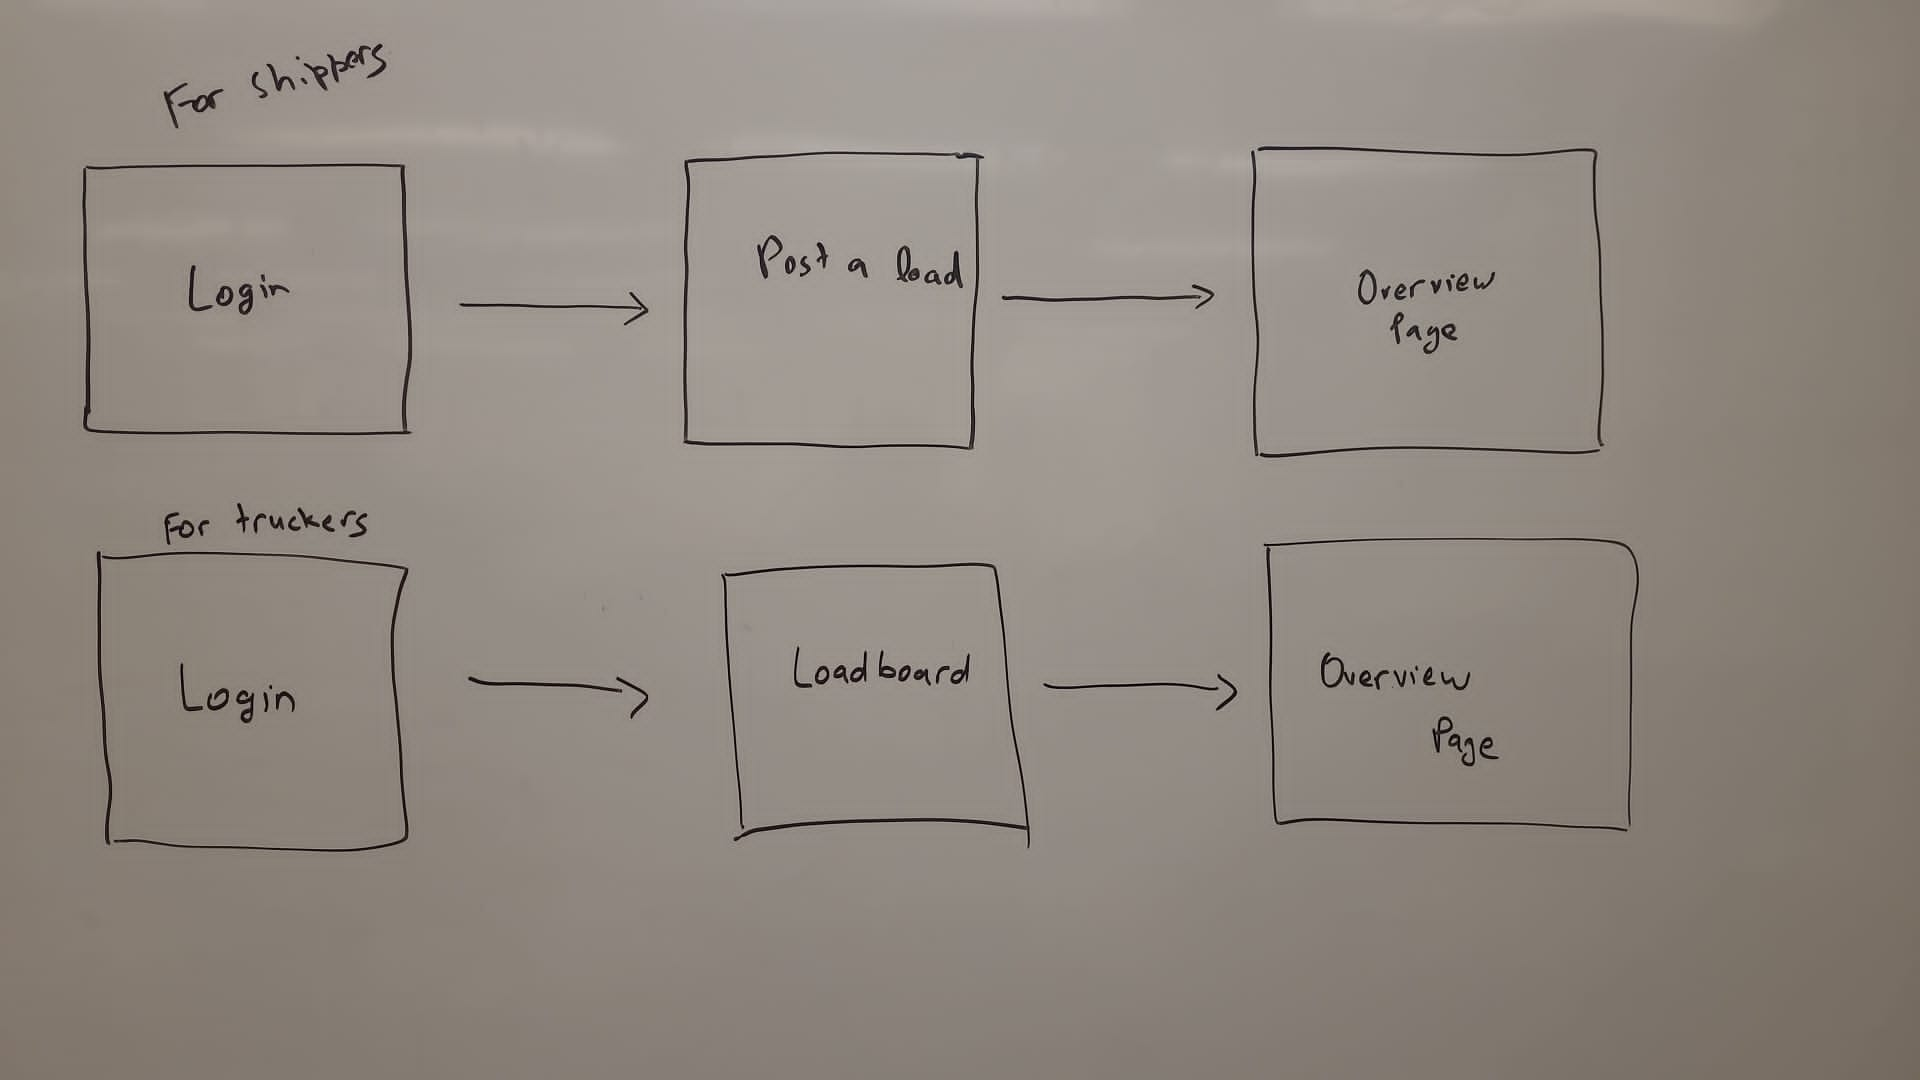 For shippers
Login
Post a load
Overview
Page
For truckers
Login
Loadboard
Overview
Page